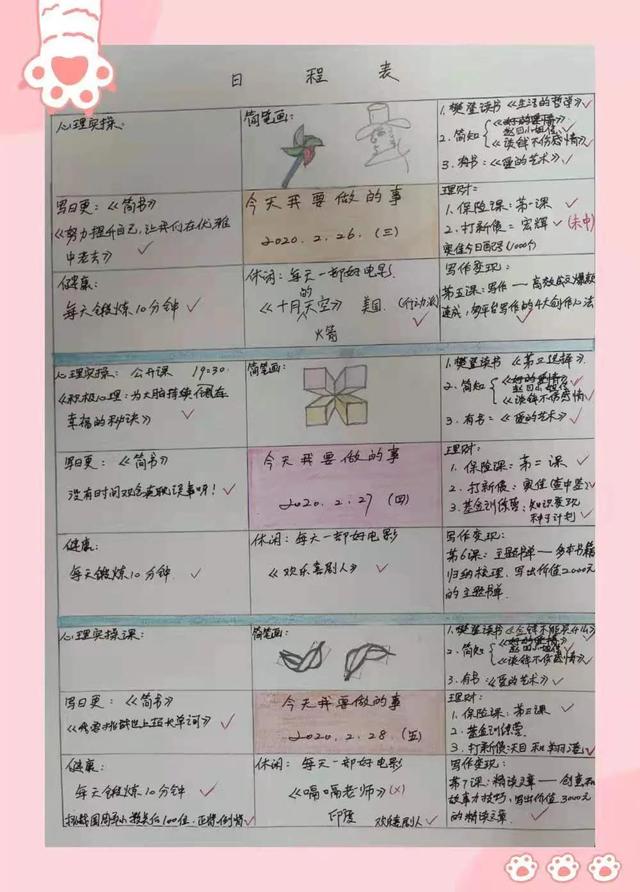 日 程 表
心理实操:
简笔画:
1. 樊登读书《生活的哲学》
2. 简知 《好的爱情》
《谈钱不伤感情》
3. 有书:《爱的艺术》
写日更:《简书》
《努力提升自己,让我们在优雅
中老去》
今天我要做的事
2020.2.26.(三)
理财:
1. 保险课:第一课
2. 打新债:宏辉(未中)
健康:
每天锻炼10分钟
休闲:每天一部好电影
《十月的天空》 美国
火箭
写作变现:
第五课:写作——
心理实操: 公开课 19:30
《积极心理:为大脑持续
幸福的秘诀》
简笔画:
1. 樊登读书《第二选择》
2. 简知 《好的爱情》
《谈钱不伤感情》
3. 有书:《爱的艺术》
写日更:《简书》
没有时间观念真耽误事呀!
今天我要做的事
2020.2.27(四)
理财:
1. 保险课:第二课
2. 打新债:奥佳
3. 基金训练营:知识变现
种子计划
健康:
每天锻炼10分钟
休闲:每天一部好电影
《欢乐喜剧人》
写作变现:
第6课:主题书单——多本书籍
归纳梳理,写出价值2000元
的主题书单
心理实操课:
简笔画:
1. 樊登读书《金钱不能买什么》
2. 简知 《好的爱情》
《谈钱不伤感情》
3. 有书:《爱的艺术》
写日更:《简书》
今天我要做的事
2020.2.28(五)
理财:
1. 保险课:第三课
2. 基金训练营
3. 打新债
健康:
每天锻炼10分钟
休闲:每天一部好电影
《嗝嗝老师》(×)
印度 欢乐喜剧人
写作变现:
第7课:精读文章——创意和
故事力技巧,写出价值3000元
的精读文章